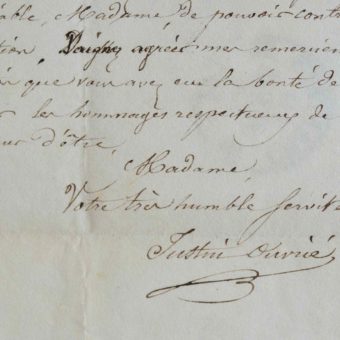 able, Madame de pouvoir contr
tion Daignez agréer mes remercien
que vous avez eu la bonté de
les hommages respectueux de
d'être,
Madame
Votre très humble servite
Justin Ouvrié